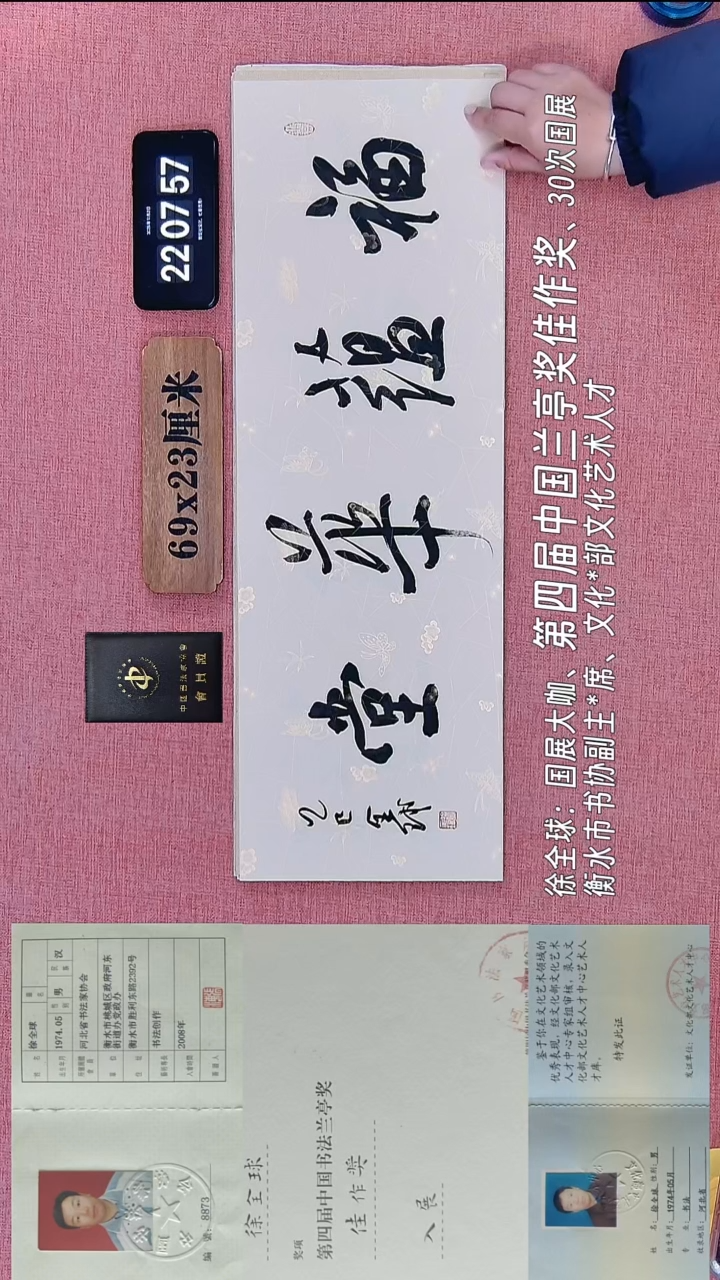 22 07 57
69x23厘米
會員證
福蕴华堂
乙巳 全球
徐全球：国展大咖、第四届中国兰亭奖佳作奖、30次国展
衡水市书协副主*席、文化*部文化艺术人才
姓名 徐全球
出生年月 1974.05 性别 男 民族 汉
河北省书法家协会
衡水市桃城区政府河东
街道办党政办
衡水市胜利东路2392号
书法创作
入会时间 2008年
编号：8873
徐全球
奖项
第四届中国书法兰亭奖
佳作奖
入展
鉴于你在文化艺术领域的
优秀表现，经文化部文化艺术
人才中心专家组审核，录入文
化部文化艺术人才中心艺术人
才库。
特发此证
发证单位：文化部文化艺术人才中心
姓名：徐全球 性别：男
出生年月：1974年05月
专业：书法
河北省